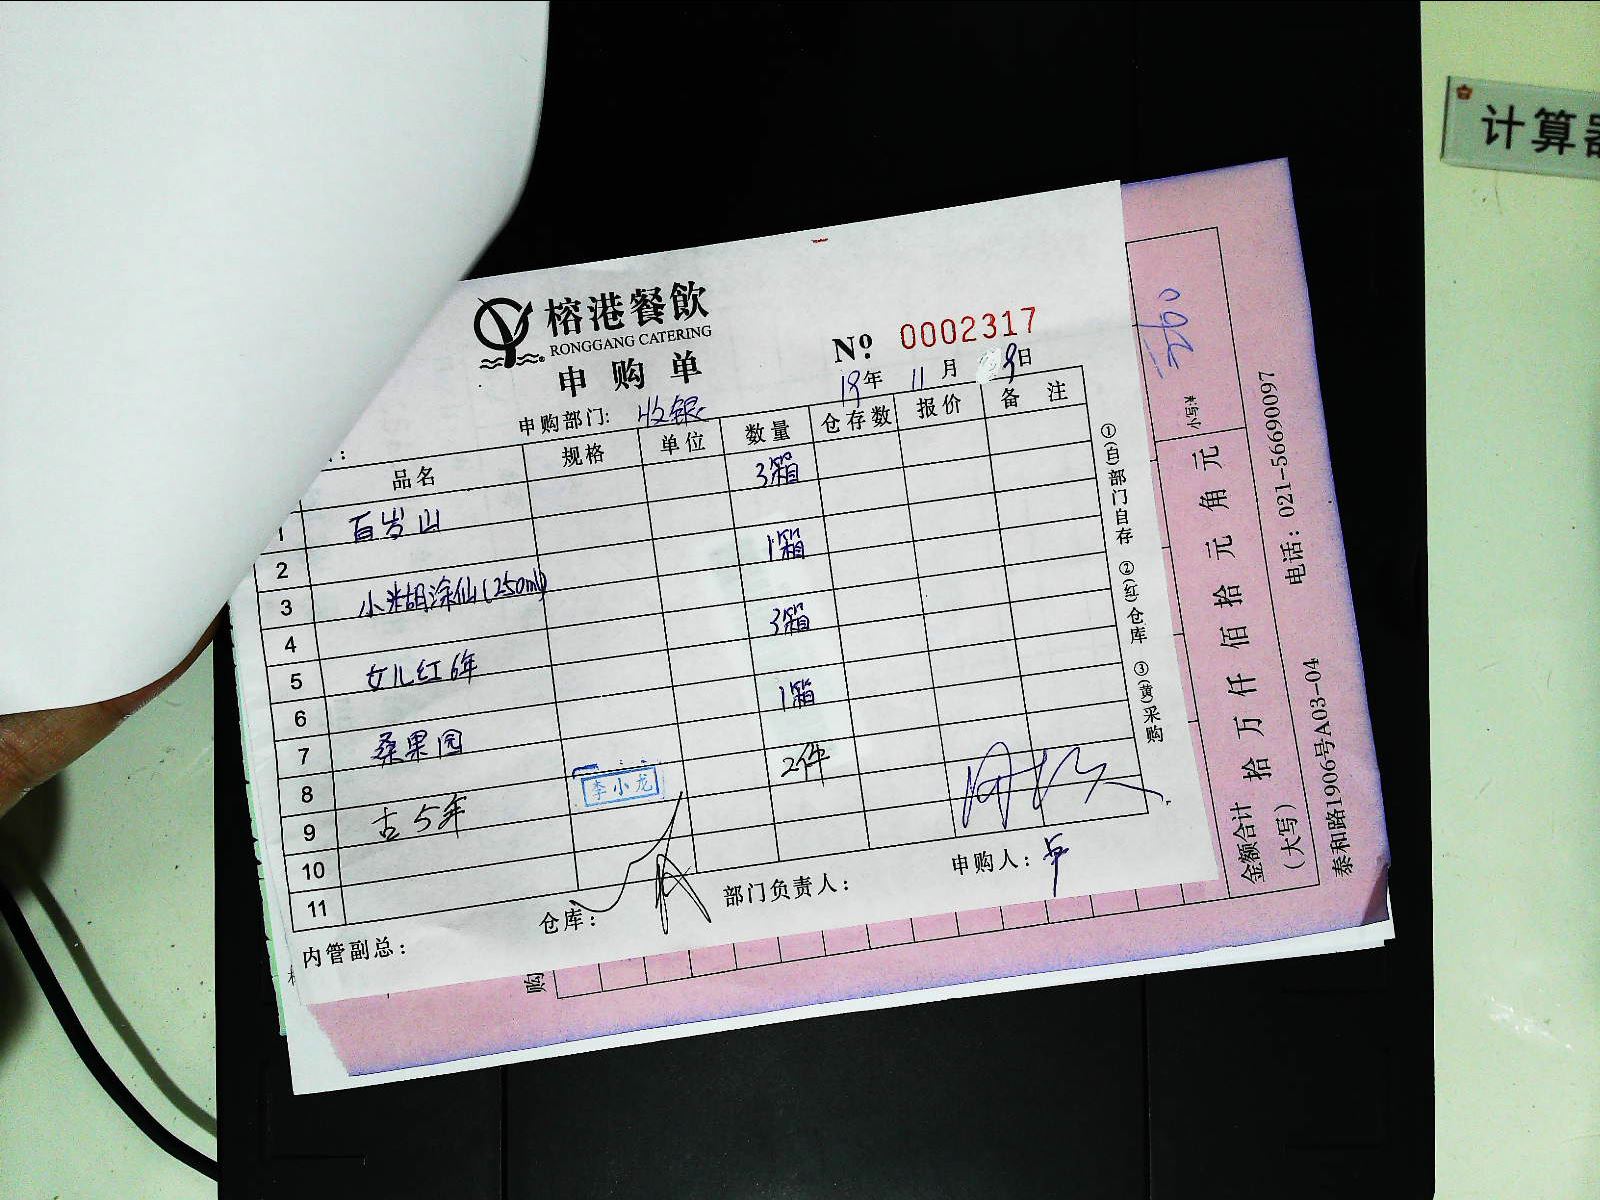 计算器
榕港餐飲
RONGGANG CATERING
申购单
№ 0002317
19年 11月 9日
申购部门: 收银
品名 规格 单位 数量 仓存数 报价 备注
3箱
1 百岁山
2 1箱
3 小糊涂仙(250ml)
4 3箱
5 女儿红6年
6 1箱
7 桑果园
8 2件
9 古5年
李小龙
10
11
内管副总: 仓库: 部门负责人: 申购人:
①(白)部门自存 ②(红)仓库 ③(黄)采购
小写:¥
金额合计 拾 万 仟 佰 拾 元 角 元
(大写)
泰和路1906号A03-04 电话: 021-56690097
购